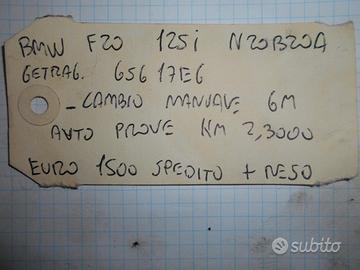 BMW F20 125i N20B20A
GETRAG. GS6 17EG
- CAMBIO MANUALE 6M
AUTO PROVE KM 2,3000
EURO 1500 SPEDITO + RESO
subito